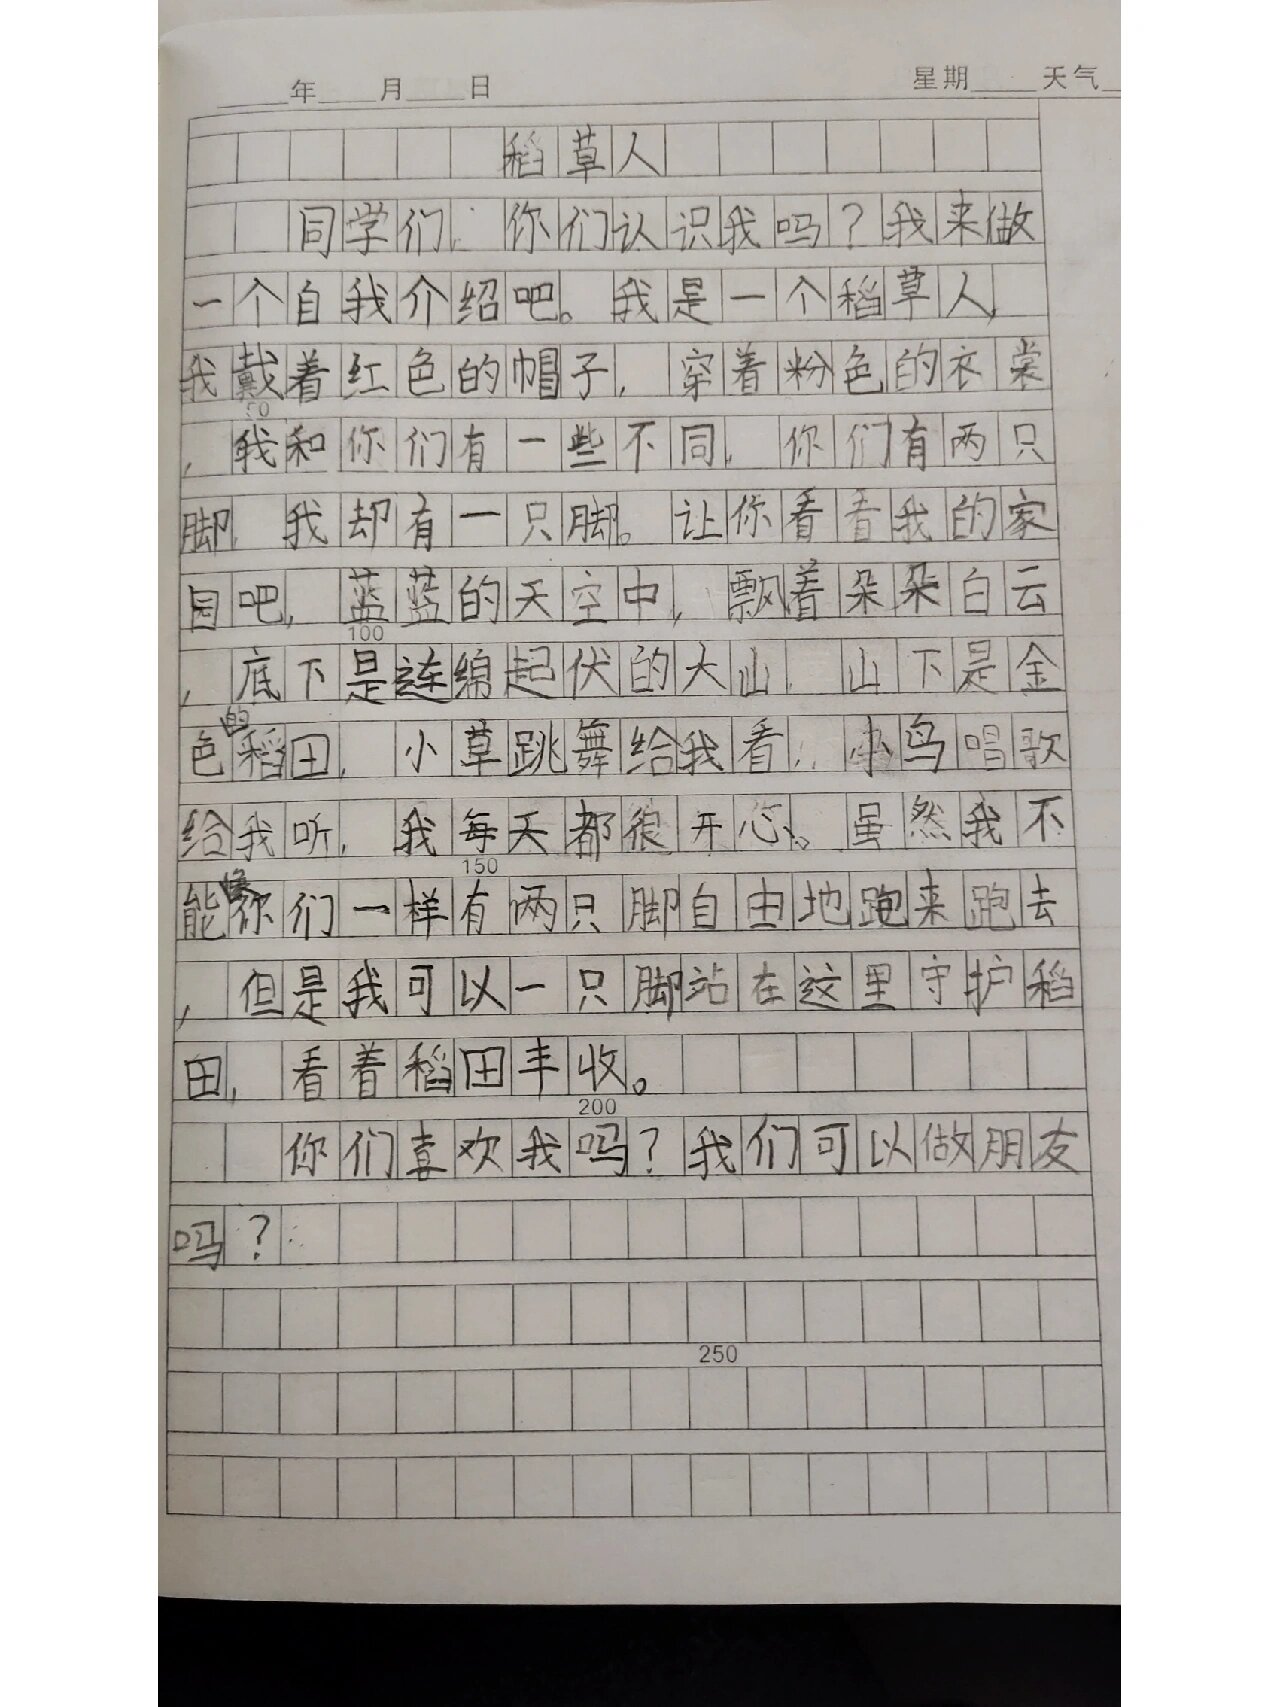 年 月 日 星期 天气
稻草人
同学们,你们认识我吗?我来做
一个自我介绍吧。我是一个稻草人,
我戴着红色的帽子,穿着粉色的衣裳
50
,我和你们有一些不同,你们有两只
脚,我却有一只脚。让你看看我的家
园吧,蓝蓝的天空中,飘着朵朵白云
100
,底下是连绵起伏的大山,山下是金
色的稻田,小草跳舞给我看,小鸟唱歌
给我听,我每天都很开心。虽然我不
150
能像你们一样有两只脚自由地跑来跑去
,但是我可以一只脚站在这里守护稻
田,看着稻田丰收。
200
你们喜欢我吗?我们可以做朋友
吗?
250